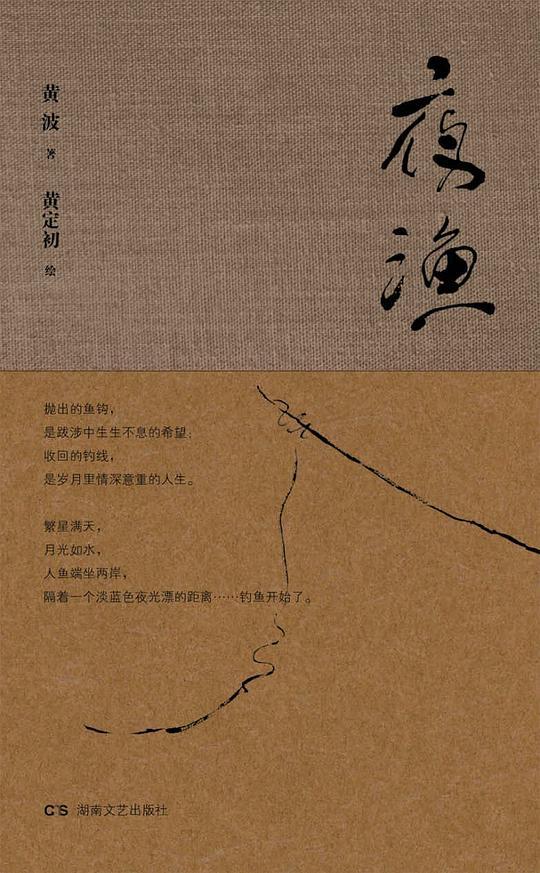 夜渔
黄波 著
黄定初 绘
抛出的鱼钩，
是跋涉中生生不息的希望；
收回的钓线，
是岁月里情深意重的人生。
繁星满天，
月光如水，
人鱼端坐两岸，
隔着一个淡蓝色夜光漂的距离……钓鱼开始了。
CS 湖南文艺出版社